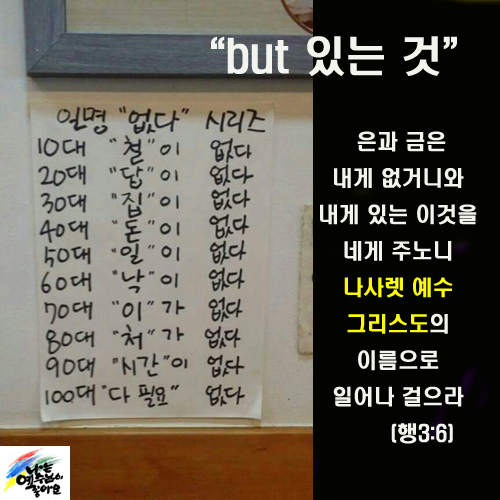 일명 "없다" 시리즈
10대 "철"이 없다
20대 "답"이 없다
30대 "집"이 없다
40대 "돈"이 없다
50대 "일"이 없다
60대 "낙"이 없다
70대 "이"가 없다
80대 "처"가 없다
90대 "시간"이 없다
100대 "다 필요" 없다
“but 있는 것”
은과 금은
내게 없거니와
내게 있는 이것을
네게 주노니
나사렛 예수
그리스도의
이름으로
일어나 걸으라
(행3:6)
나는
예수님이
좋아요